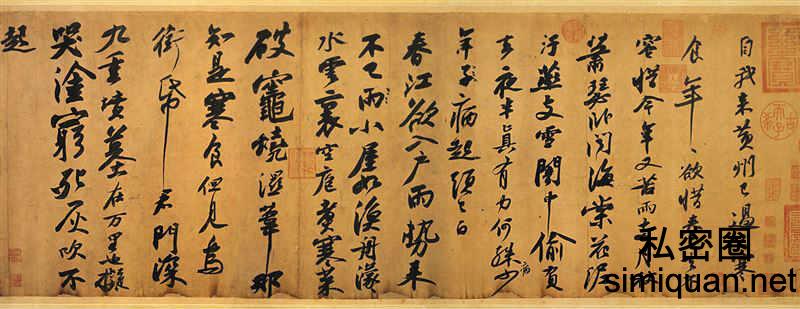 自我來黃州已過三寒
食年〻欲惜春
容惜今年又苦雨兩月秋
蕭瑟卧聞海棠花泥
汙燕支雪闇中偷負
去夜半真有力何殊少
病
年子病起須已白
春江欲入戶雨勢來
不已雨小屋如漁舟濛〻
水雲裏空庖煮寒菜
破竈燒濕葦那
知是寒食但見烏
銜帋君門深
九重墳墓在万里也擬
哭塗窮死灰吹不
起
私密圈
simiquan.net